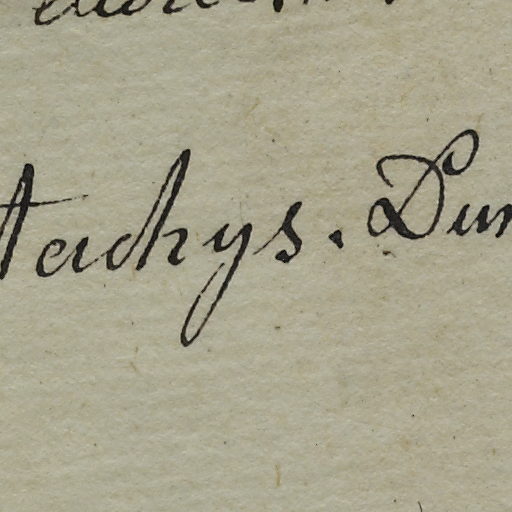 tachys. Dun